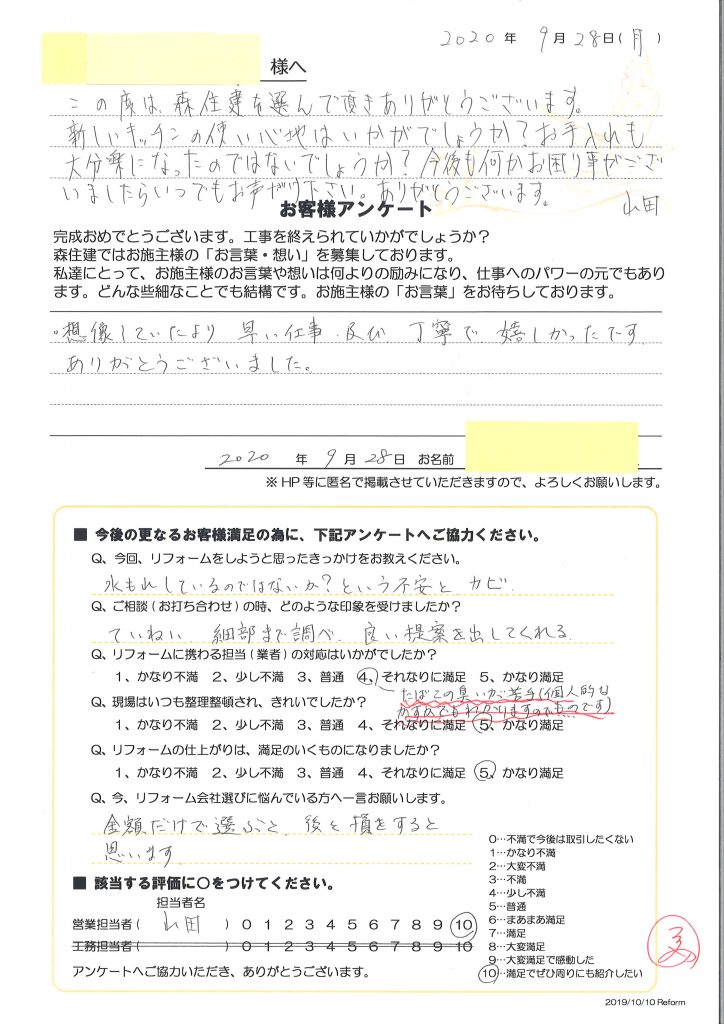 2020年 9月28日(月)
様へ
この度は、森住建を選んで頂きありがとうございます。
新しいキッチンの使い心地はいかがでしょうか?お手入れも
大分楽になったのではないでしょうか?今後も何かお困り事がござ
いましたらいつでもお声がけ下さい。ありがとうございます。
山田
お客様アンケート
完成おめでとうございます。工事を終えられていかがでしょうか?
森住建ではお施主様の「お言葉・想い」を募集しております。
私達にとって、お施主様のお言葉や想いは何よりの励みになり、仕事へのパワーの元でもあり
ます。どんな些細なことでも結構です。お施主様の「お言葉」をお待ちしております。
・想像していたより 早い仕事 及び 丁寧で 嬉しかったです
ありがとうございました。
2020年 9月28日 お名前
※HP等に匿名で掲載させていただきますので、よろしくお願いします。
■ 今後の更なるお客様満足の為に、下記アンケートへご協力ください。
Q、今回、リフォームをしようと思ったきっかけをお教えください。
水もれしているのではないか?という不安と カビ
Q、ご相談(お打ち合わせ)の時、どのような印象を受けましたか?
ていねい 細部まで調べ、良い提案を出してくれる
Q、リフォームに携わる担当(業者)の対応はいかがでしたか?
1、かなり不満 2、少し不満 3、普通 4、それなりに満足 5、かなり満足
たばこの臭いが苦手(個人的な
ものです)
Q、現場はいつも整理整頓され、きれいでしたか?
1、かなり不満 2、少し不満 3、普通 4、それなりに満足 5、かなり満足
Q、リフォームの仕上がりは、満足のいくものになりましたか?
1、かなり不満 2、少し不満 3、普通 4、それなりに満足 5、かなり満足
Q、今、リフォーム会社選びに悩んでいる方へ一言お願いします。
金額だけで選ぶと 後々損をすると
思います
■ 該当する評価に○をつけてください。
担当者名
営業担当者( 山田 ) 0 1 2 3 4 5 6 7 8 9 10
工務担当者( ) 0 1 2 3 4 5 6 7 8 9 10
アンケートへご協力いただき、ありがとうございます。
0…不満で今後は取引したくない
1…かなり不満
2…大変不満
3…不満
4…少し不満
5…普通
6…まあまあ満足
7…満足
8…大変満足
9…大変満足で感動した
10…満足でぜひ周りにも紹介したい
2019/10/10 Reform